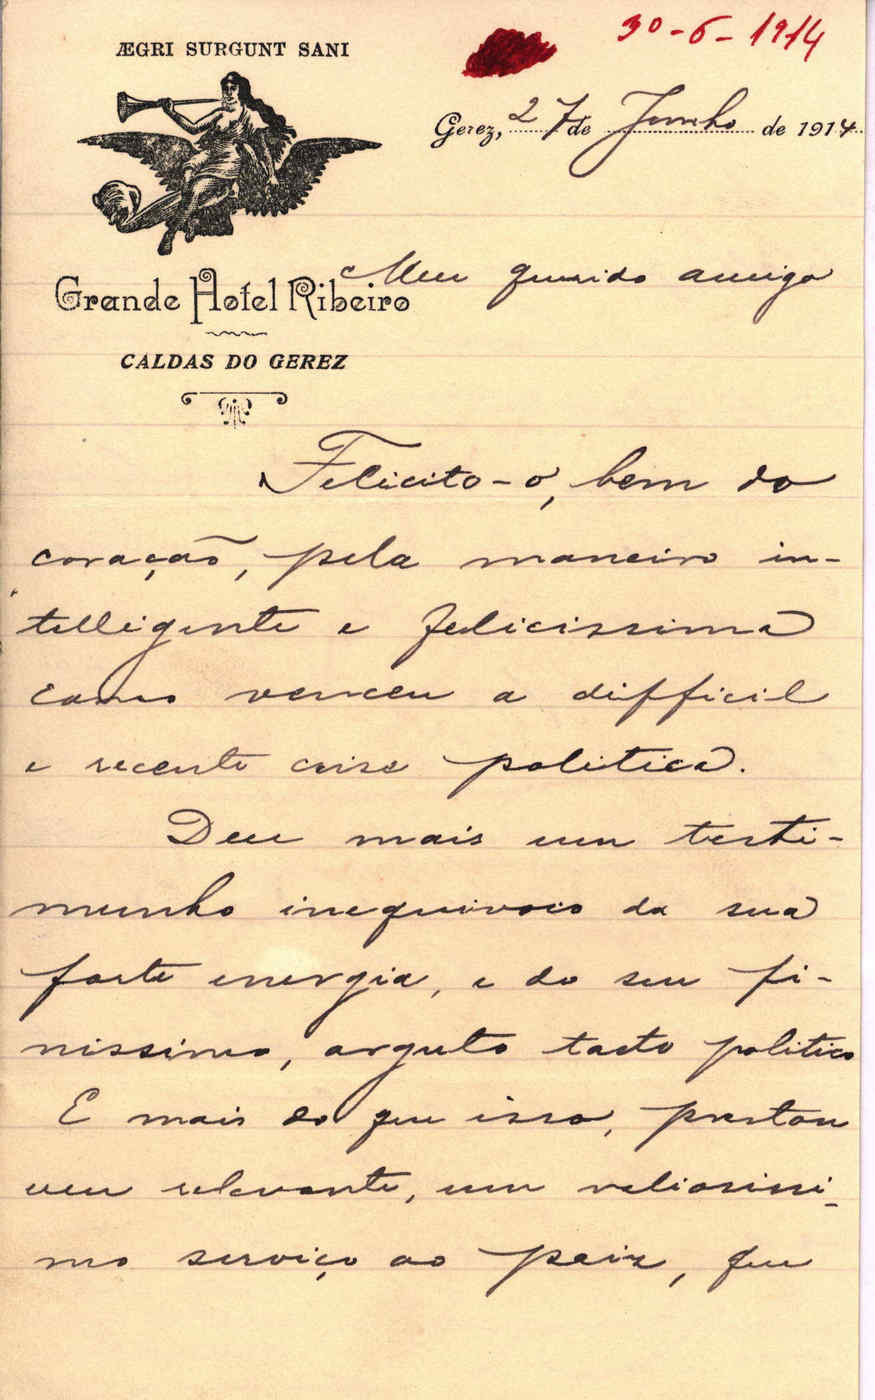 30-6-1914
ÆGRI SURGUNT SANI
Gerez, 27 de Junho de 1914
Meu querido amigo
Grande Hotel Ribeiro
CALDAS DO GEREZ
Felicito-o, bem do
coração, pela maneira in-
telligente e felicissima
como venceu a difficil
e recente crise politica.
Deu mais um testi-
munho inequivoco da sua
forte energia, e do seu fi-
nissimo, arguto tacto politico
E mais do que isso, prestou
um relevante, um valiosissi-
mo serviço ao paiz, que